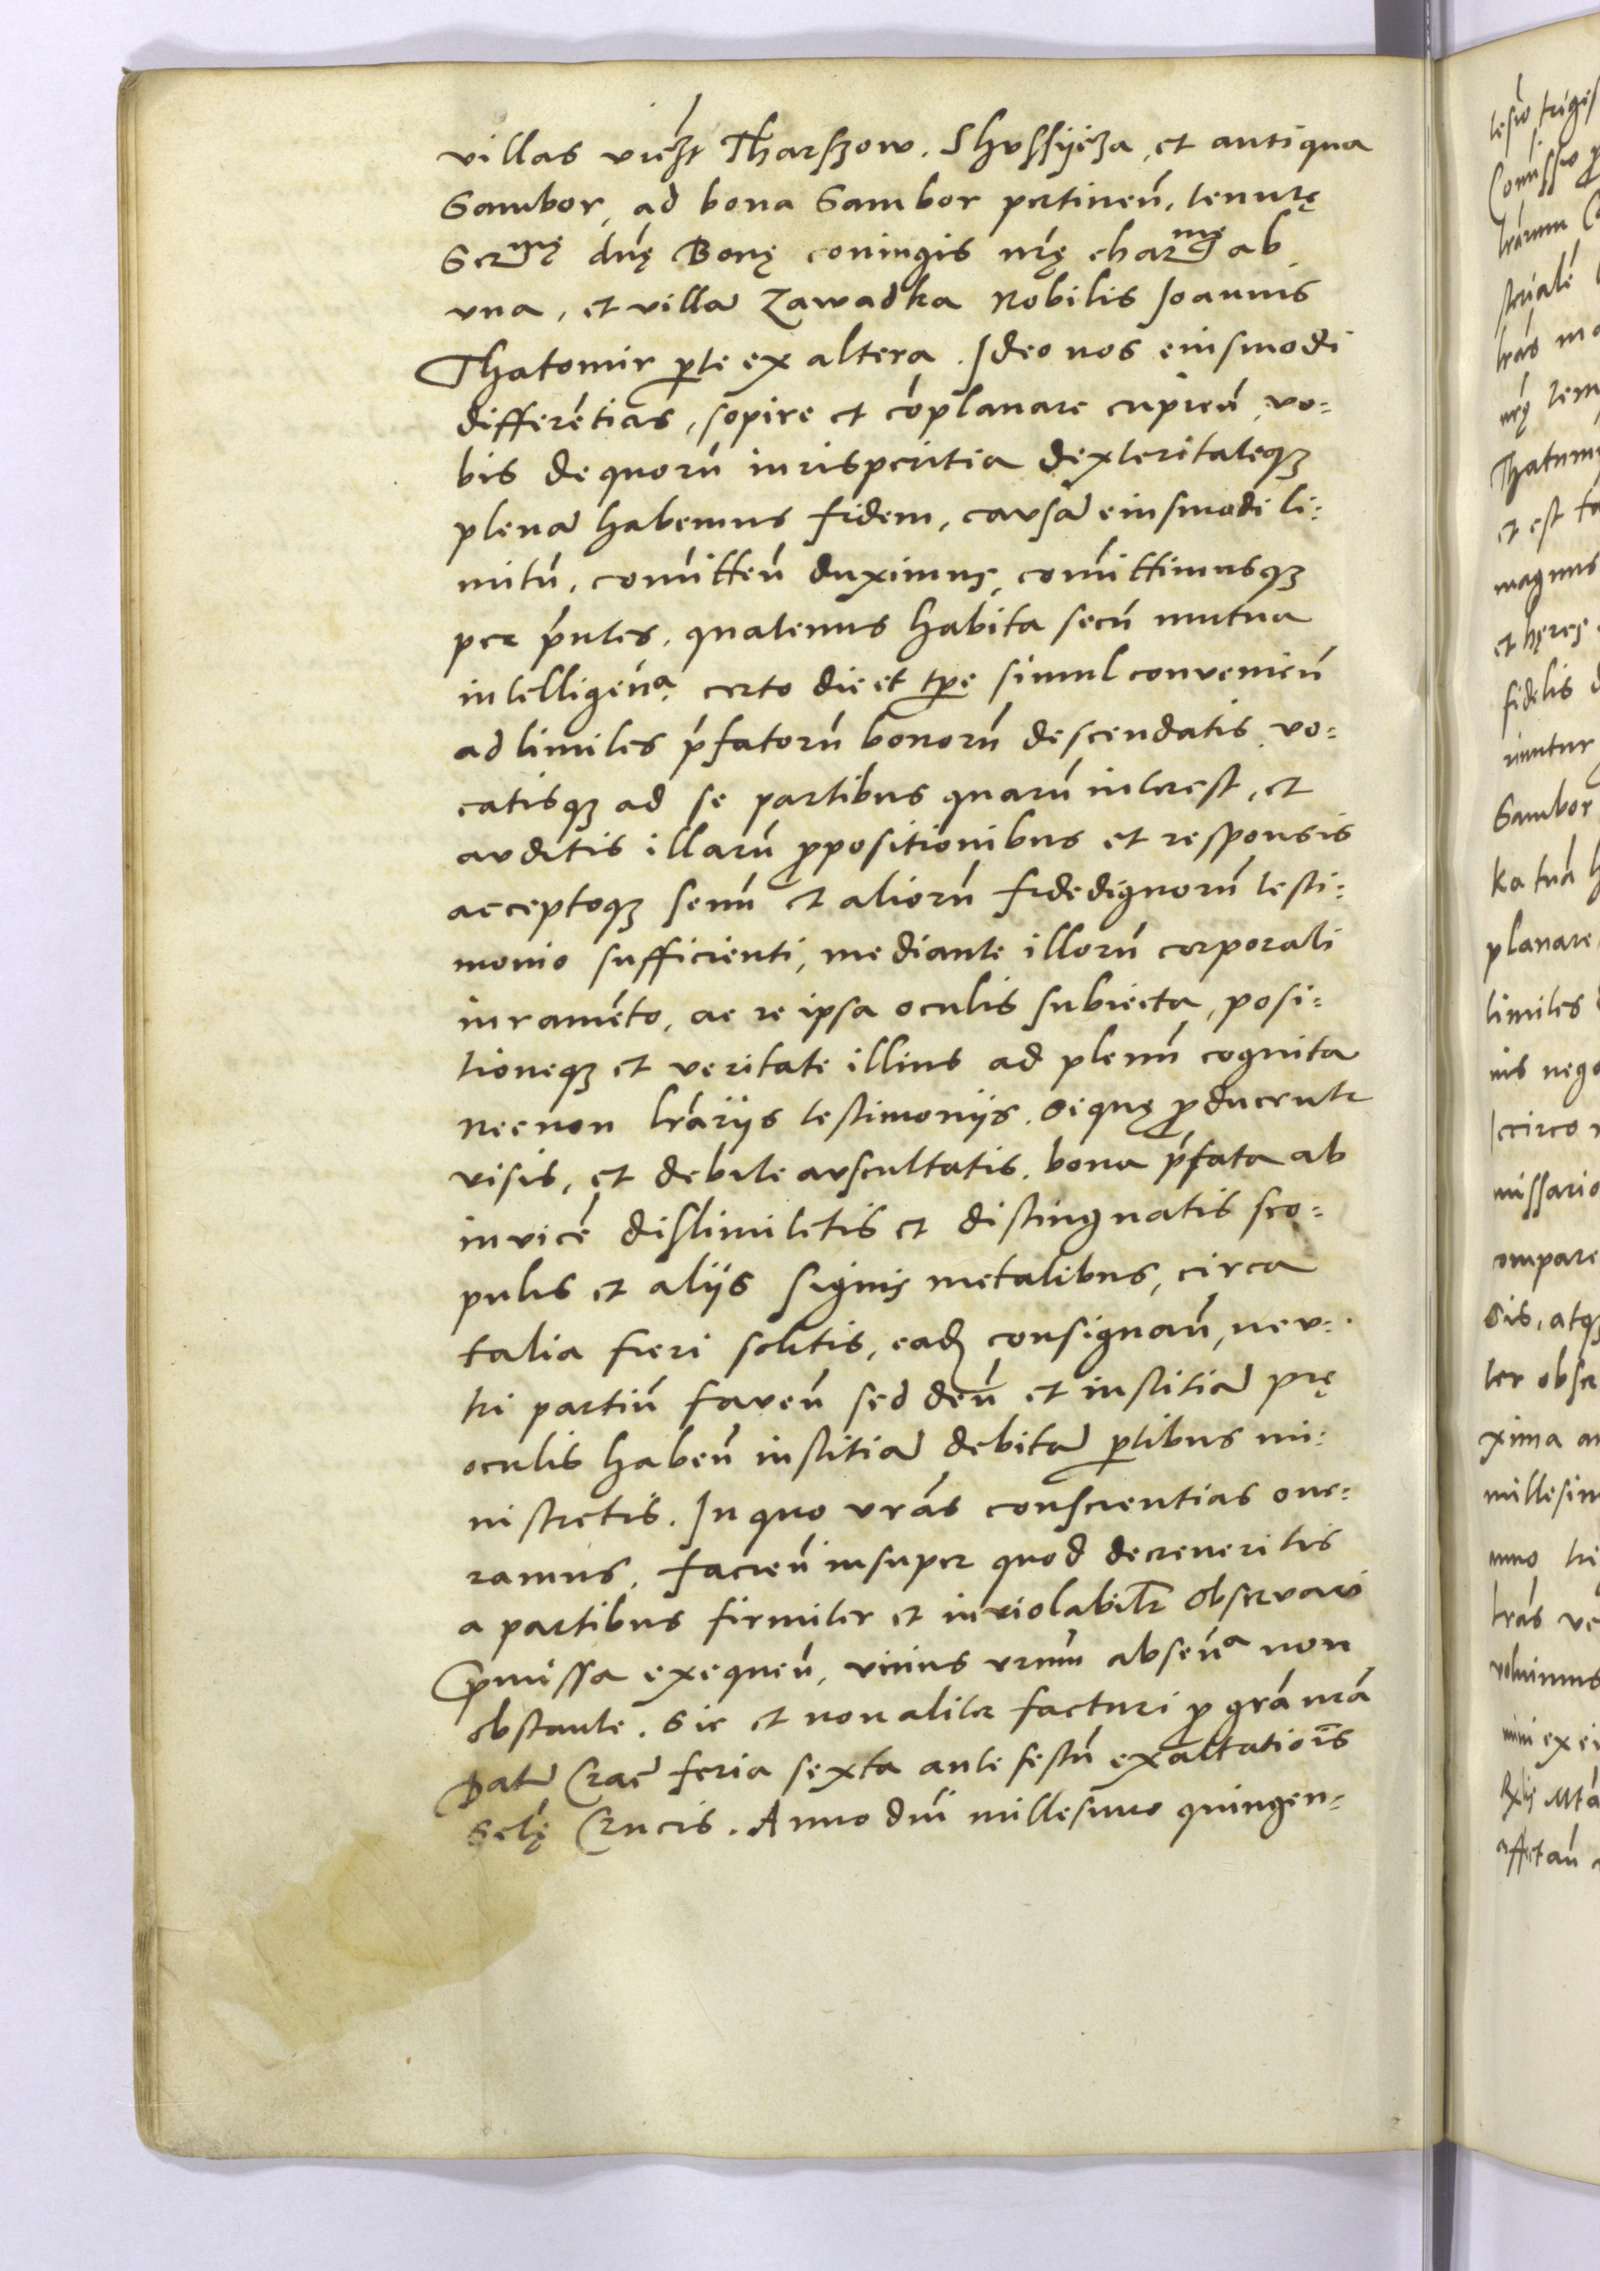 villas vi&#780;cz Tharszow. Shvssÿcza, et antiqua
Sambor, ad bona Sambor pertineñ, tenutę
Ser^mę dńę Bonę coniugis nŕę char^mę ab
vna, et villā Zawadka Nobilis Joannis
Thatomir ꝑte ex altera. Ideo nos eiusmodi
differētias, sopire et cōplanare cupieñ, vo:
bis de quorū iurisperitia dexteritateqꝫ
plenā habemus fidem, cavsā eiusmodi li:
mitū, cōmitteñ duximus, cōmittimusqꝫ
per p̄ntes, quatenus habita secū mutua
intelligeñ^a, certo die et tp̄e simul convenieñ
ad limites p̄fatorū bonorū descendatis, vo:
catisqꝫ ad se partibus quarū interest, et
avditis illarū ꝓpositionibus et responsis
acceptoqꝫ senū et aliorū fidedignorū testi:
monio sufficienti, mediante illorū corporali
iuramēto, ac re ipsa oculis subiecta, posi:
tioneqꝫ et veritate illius ad plenū cognita
Necnon l̄rarijs testimonijs. si quę ꝓducentr
visis, et debite avscultatis, bona p̄fata ab
invicē dislimitetis et distinguatis sco:
pulis et alijs signis metalibus, circa
talia fieri solitis, eadꝫ consignañ, nev:
tri partiū faveñ sed deū et iustitiā prę
oculis habeñ iustitiā debitā ꝑtibus mi:
nistretis. In quo vrās conscientias one:
ramus, facieñ insuper quod decreveritis
a partibus firmiter et inviolabilr̄ observari
P̄missa exequeñ, vnius vrum̄ abseñ^a non
obstante. Sic et non aliter facturi ꝓ grā nrā
Datū Crac̄ feria sexta ante festū exaltatiōis
Sctę Crucis. Anno dńi millesimo quingen: